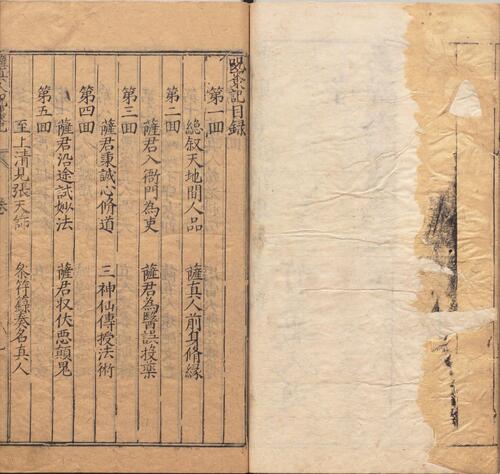 呪棗記目錄
第一回
總叙天地間人品 薩真人前身脩緣
第二回
薩君入衙門為吏 薩君為醫誤投藥
第三回
薩君秉誠心脩道 三神仙傳授法術
第四回
薩君沿途試妙法 薩君收伏惡顛鬼
第五回
至上清見張天師 參符籙奏名真人